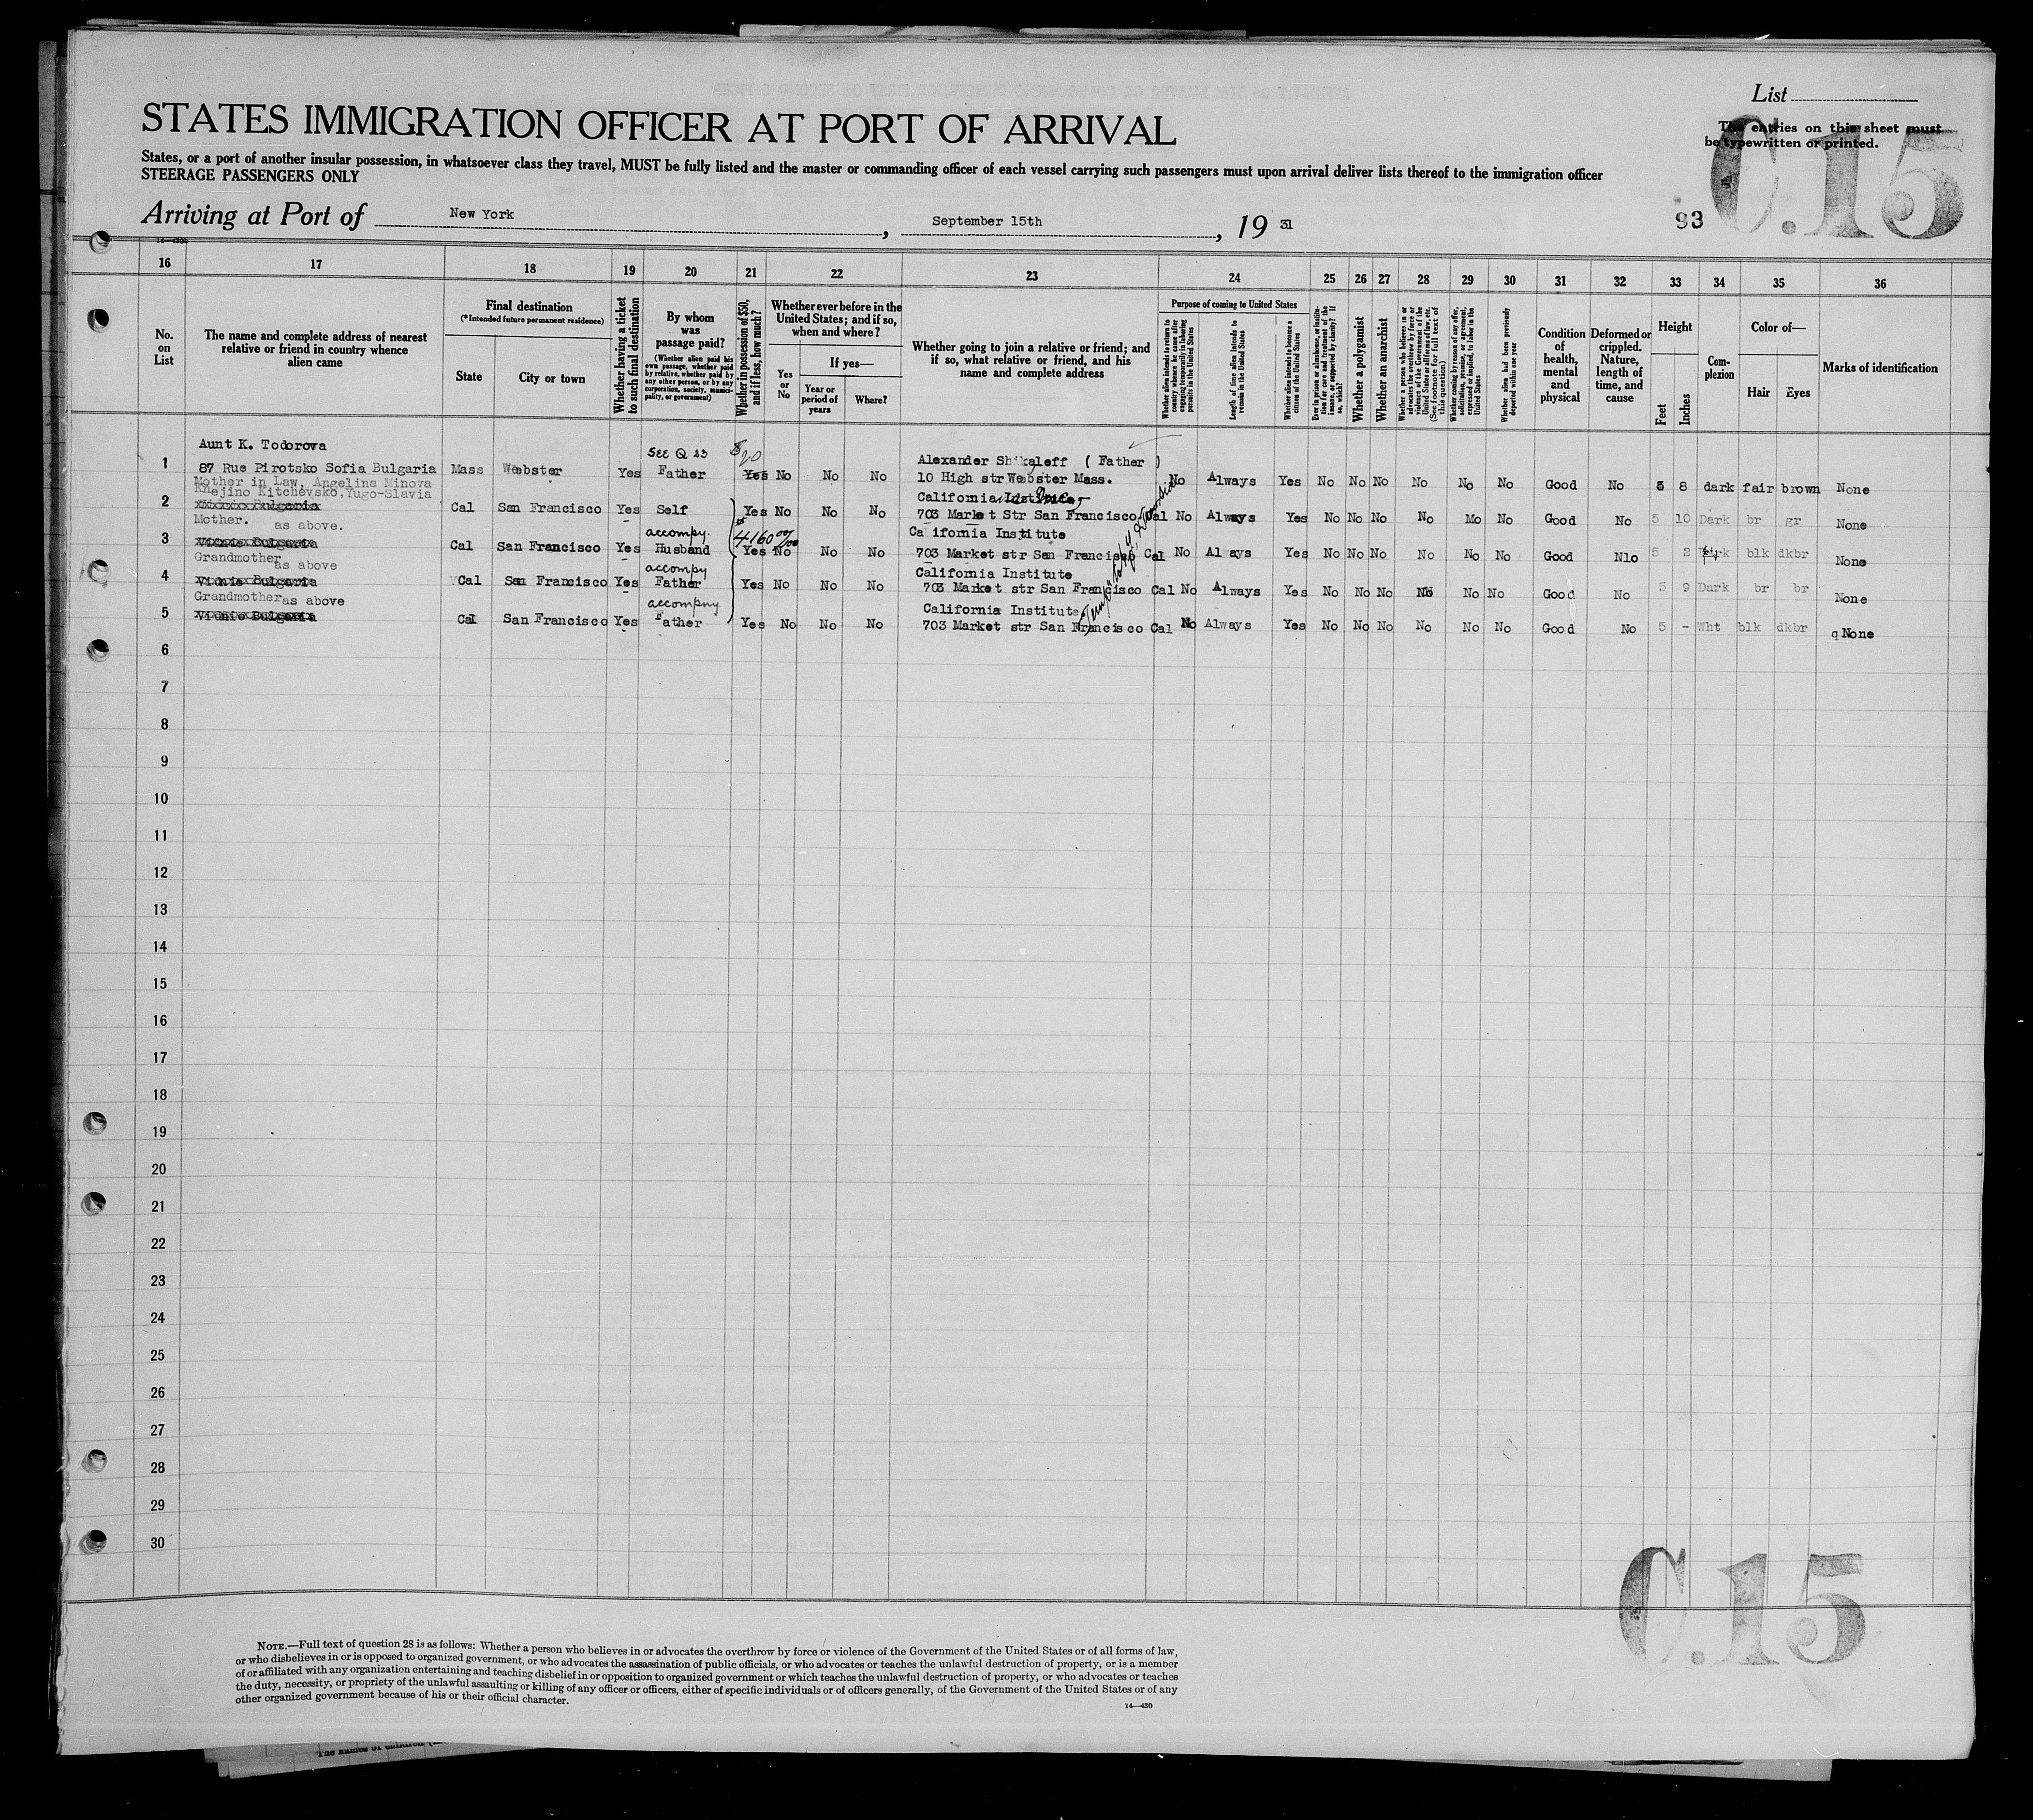 List
STATES IMMIGRATION OFFICER AT PORT OF ARRIVAL
The entries on this sheet must
be typewritten or printed.
C.15
States, or a port of another insular possession, in whatsoever class they travel, MUST be fully listed and the master or commanding officer of each vessel carrying such passengers must upon arrival deliver lists thereof to the immigration officer
STEERAGE PASSENGERS ONLY
Arriving at Port of New York, September 15th, 19 31
93
14—430b
16 17 18 19 20 21 22 23 24 25 26 27 28 29 30 31 32 33 34 35 36
No. on List
The name and complete address of nearest relative or friend in country whence alien came
Final destination
(*Intended future permanent residence)
State
City or town
Whether having a ticket to such final destination
By whom was passage paid?
(Whether alien paid his own passage, whether paid by relative, whether paid by any other person, or by any corporation, society, municipality, or government)
Whether in possession of $50, and if less, how much?
Whether ever before in the United States; and if so, when and where?
Yes or No
If yes—
Year or period of years
Where?
Whether going to join a relative or friend; and if so, what relative or friend, and his name and complete address
Purpose of coming to United States
Whether alien intends to return to country whence he came after engaging temporarily in laboring pursuits in the United States
Length of time alien intends to remain in the United States
Whether alien intends to become a citizen of the United States
Ever in prison or almshouse, or institution for care and treatment of the insane, or supported by charity? If so, which?
Whether a polygamist
Whether an anarchist
Whether a person who believes in or advocates the overthrow by force or violence of the Government of the United States or all forms of law, etc. (See footnote for full text of this question)
Whether coming by reason of any offer, solicitation, promise, or agreement, expressed or implied, to labor in the United States
Whether alien had been previously deported within one year
Condition of health, mental and physical
Deformed or crippled. Nature, length of time, and cause
Height
Feet
Inches
Complexion
Color of—
Hair
Eyes
Marks of identification
Aunt K. Todorova
See Q 23 $20
Alexander Shikaleff ( Father )
1 87 Rue Pirotsko Sofia Bulgaria Mass Webster Yes Father Yes No No No 10 High str Webster Mass. No Always Yes No No No No No No Good No 5 8 dark fair brown None
Mother in Law, Angelina Minova
Knejino Kitchevsko.Yugo-Slavia
California Institute
2 Bulgaria Cal San Francisco Yes Self Yes No No No 703 Market Str San Francisco Cal No Always Yes No No No No Mo No Good No 5 10 Dark br gr None
Mother. as above.
accompy. $4160 00/00
California Institute
3 Vidnie Bulgaria Cal San Francisco Yes Husband Yes No No No 703 Market str San Francisco Cal No Al ays Yes No No No No No No Good Nlo 5 2 blk dkbr None
Grandmother as above
accompy
California Institute
4 Vidnie Bulgaria Cal San Francisco Yes Father Yes No No No 703 Market str San Francisco Cal No Always Yes No No No No No No Good No 5 9 Dark br br None
Grandmother as above
accompny
California Institute
5 Vidnie Bulgaria Cal San Francisco Yes Father Yes No No No 703 Market str San Francisco Cal No Always Yes No No No No No No Good No 5 - Wht blk dkbr q None
6
7
8
9
10
11
12
13
14
15
16
17
18
19
20
21
22
23
24
25
26
27
28
29
30
C.15
NOTE.—Full text of question 28 is as follows: Whether a person who believes in or advocates the overthrow by force or violence of the Government of the United States or of all forms of law,
or who disbelieves in or is opposed to organized government, or who advocates the assassination of public officials, or who advocates or teaches the unlawful destruction of property, or is a member
of or affiliated with any organization entertaining and teaching disbelief in or opposition to organized government or which teaches the unlawful destruction of property, or who advocates or teaches
the duty, necessity, or propriety of the unlawful assaulting or killing of any officer or officers, either of specific individuals or of officers generally, of the Government of the United States or of any
other organized government because of his or their official character.
14—430